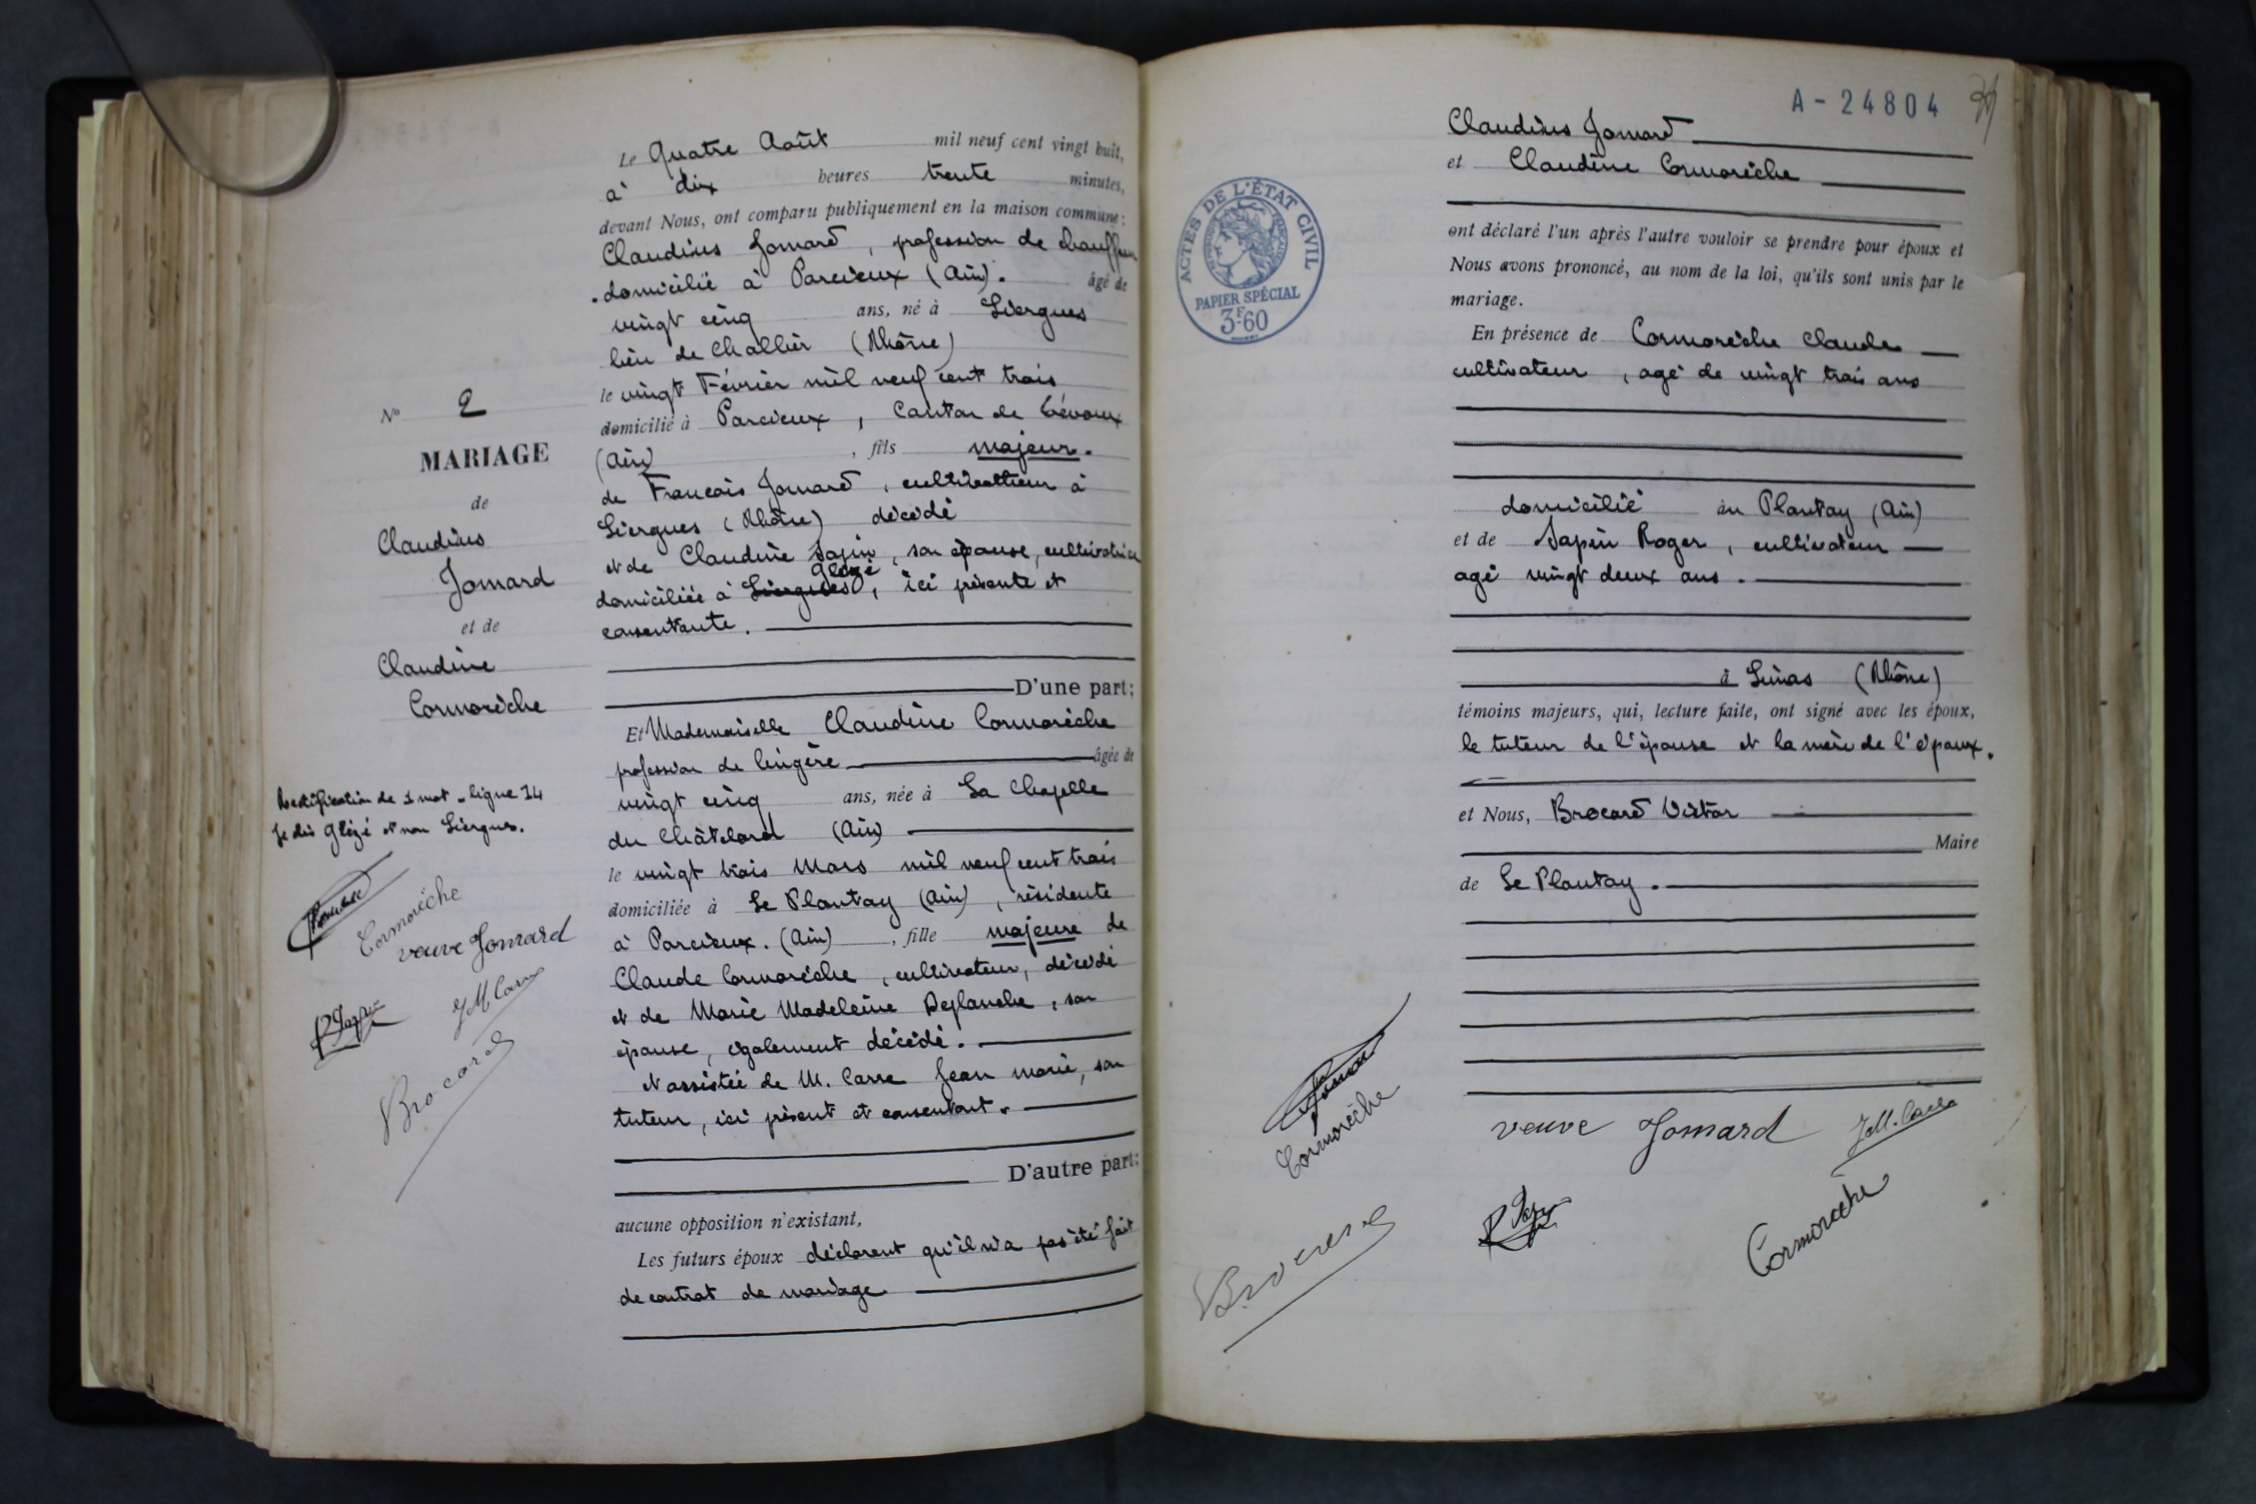 N° 2
MARIAGE
de
Claudius
Jomard
et de
Claudine
Cormorèche
Rectification de 1 mot - ligne 14
Je dis Glézé et non Liergues.
Cormorèche
veuve Jomard
JM Carre
Brocard
Le Quatre Août mil neuf cent vingt huit,
à dix heures trente minutes,
devant Nous, ont comparu publiquement en la maison commune :
Claudius Jomard, profession de chauffeur
domicilié à Parcieux (Ain). âgé de
vingt cinq ans, né à Liergues
lieu de Challier (Rhône)
le vingt Février mil neuf cent trois
domicilié à Parcieux, Canton de Trévoux
(Ain), fils majeur.
de Francois Jomard, cultivatieur à
Liergues (Rhône) décédé
et de Claudine Sapin, son épouse, cultivatrice
Glézé
domiciliée à Liergues, ici présente et
consentante.
D'une part;
Et Mademoiselle Claudine Cormorèche
profession de lingère âgée de
vingt cinq ans, née à La Chapelle
du Châtelard (Ain)
le vingt trois Mars mil neuf cent trois
domiciliée à Le Plantay (Ain), résidente
à Parcieux. (Ain), fille majeure de
Claude Cormorèche, cultivateur, décédé
et de Marie Madeleine Deplanche, son
épouse, également décédé.
et assistée de M. Carre Jean marie, son
tuteur, ici présent et consentant.
D'autre part:
aucune opposition n'existant,
Les futurs époux déclarent qu'il n'a pas été fait
de contrat de mariage
A-24804
ACTES DE L'ÉTAT CIVIL
PAPIER SPÉCIAL
3F60
Claudius Jomard
et Claudine Cormorèche
ont déclaré l'un après l'autre vouloir se prendre pour époux et
Nous avons prononcé, au nom de la loi, qu'ils sont unis par le
mariage.
En présence de Cormorèche Claude
cultivateur, agé de vingt trois ans
domicilié au Plantay (Ain)
et de Sapin Roger, cultivateur
agé vingt deux ans.
à Limas (Rhône)
témoins majeurs, qui, lecture faite, ont signé avec les époux,
le tuteur de l'épouse et la mère de l'époux.
et Nous, Brocard Victor
Maire
de Le Plantay.
Cormorèche
veuve Jomard
JM. Carre
Brocard
Cormorèche